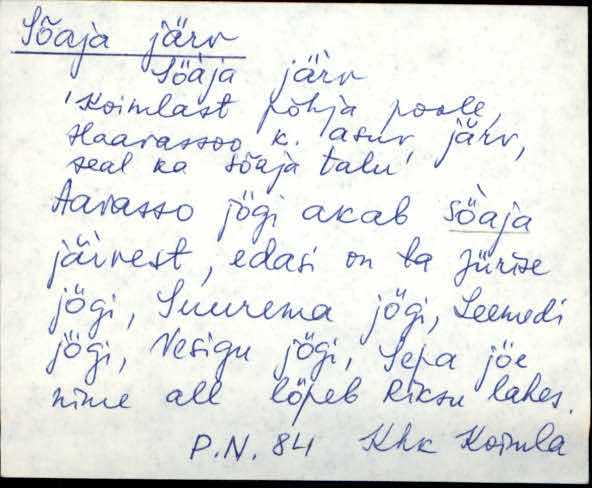 Sõaja järv
Sö̀aja järv
'Koimlast põhja poole,
Haavassoo k. asuv järv,
seal ka Sõaja talu'
Aavasso jögi akab sö̀aja
järvest, edasi on ta Jürise
jögi, Suurema jögi, Leemedi
jögi, Vesigu jögi, Sepa jöe
nime all löpeb Riksu lahes.
P.N. 84 Khk Koimla